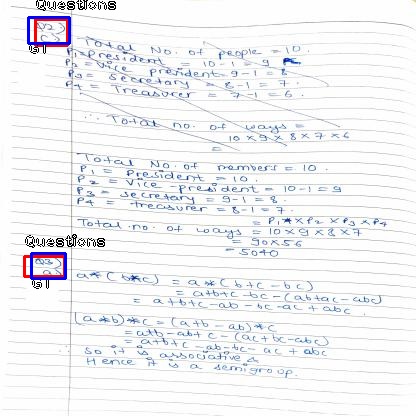 Questions
Q2)
c)
GT
Total No. of people = 10.
P1 = President = 10-1 = 9
P2 = Vice president = 9-1 = 8
P3 = Secretary = 8-1 = 7.
P4 = Treasurer = 7-1 = 6.
∴ Total no. of ways =
10 × 9 × 8 × 7 × 6
=
Total No. of members = 10.
P1 = President = 10.
P2 = Vice-president = 10-1 = 9
P3 = secretary = 9-1 = 8.
P4 = treasurer = 8-1 = 7.
= P1 * P2 × P3 × P4
Total no. of ways = 10 × 9 × 8 × 7
= 90 × 56
= 5040
Questions
Q3)
a)
GT
a*(b*c) = a*(b+c-bc)
= a+b+c-bc-(ab+ac-abc)
= a+b+c-ab-bc-ac+abc
(a*b)*c = (a+b-ab)*c
= a+b-ab+c-(ac+bc-abc)
= a+b+c-ab-bc-ac+abc
So it is associative
Hence it is a semigroup.